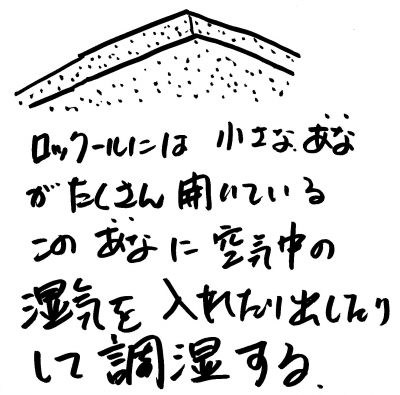 ロックールには 小さな あな
がたくさん 開いている
この あなに 空気中の
湿気を 入れたり出したり
して 調湿する.